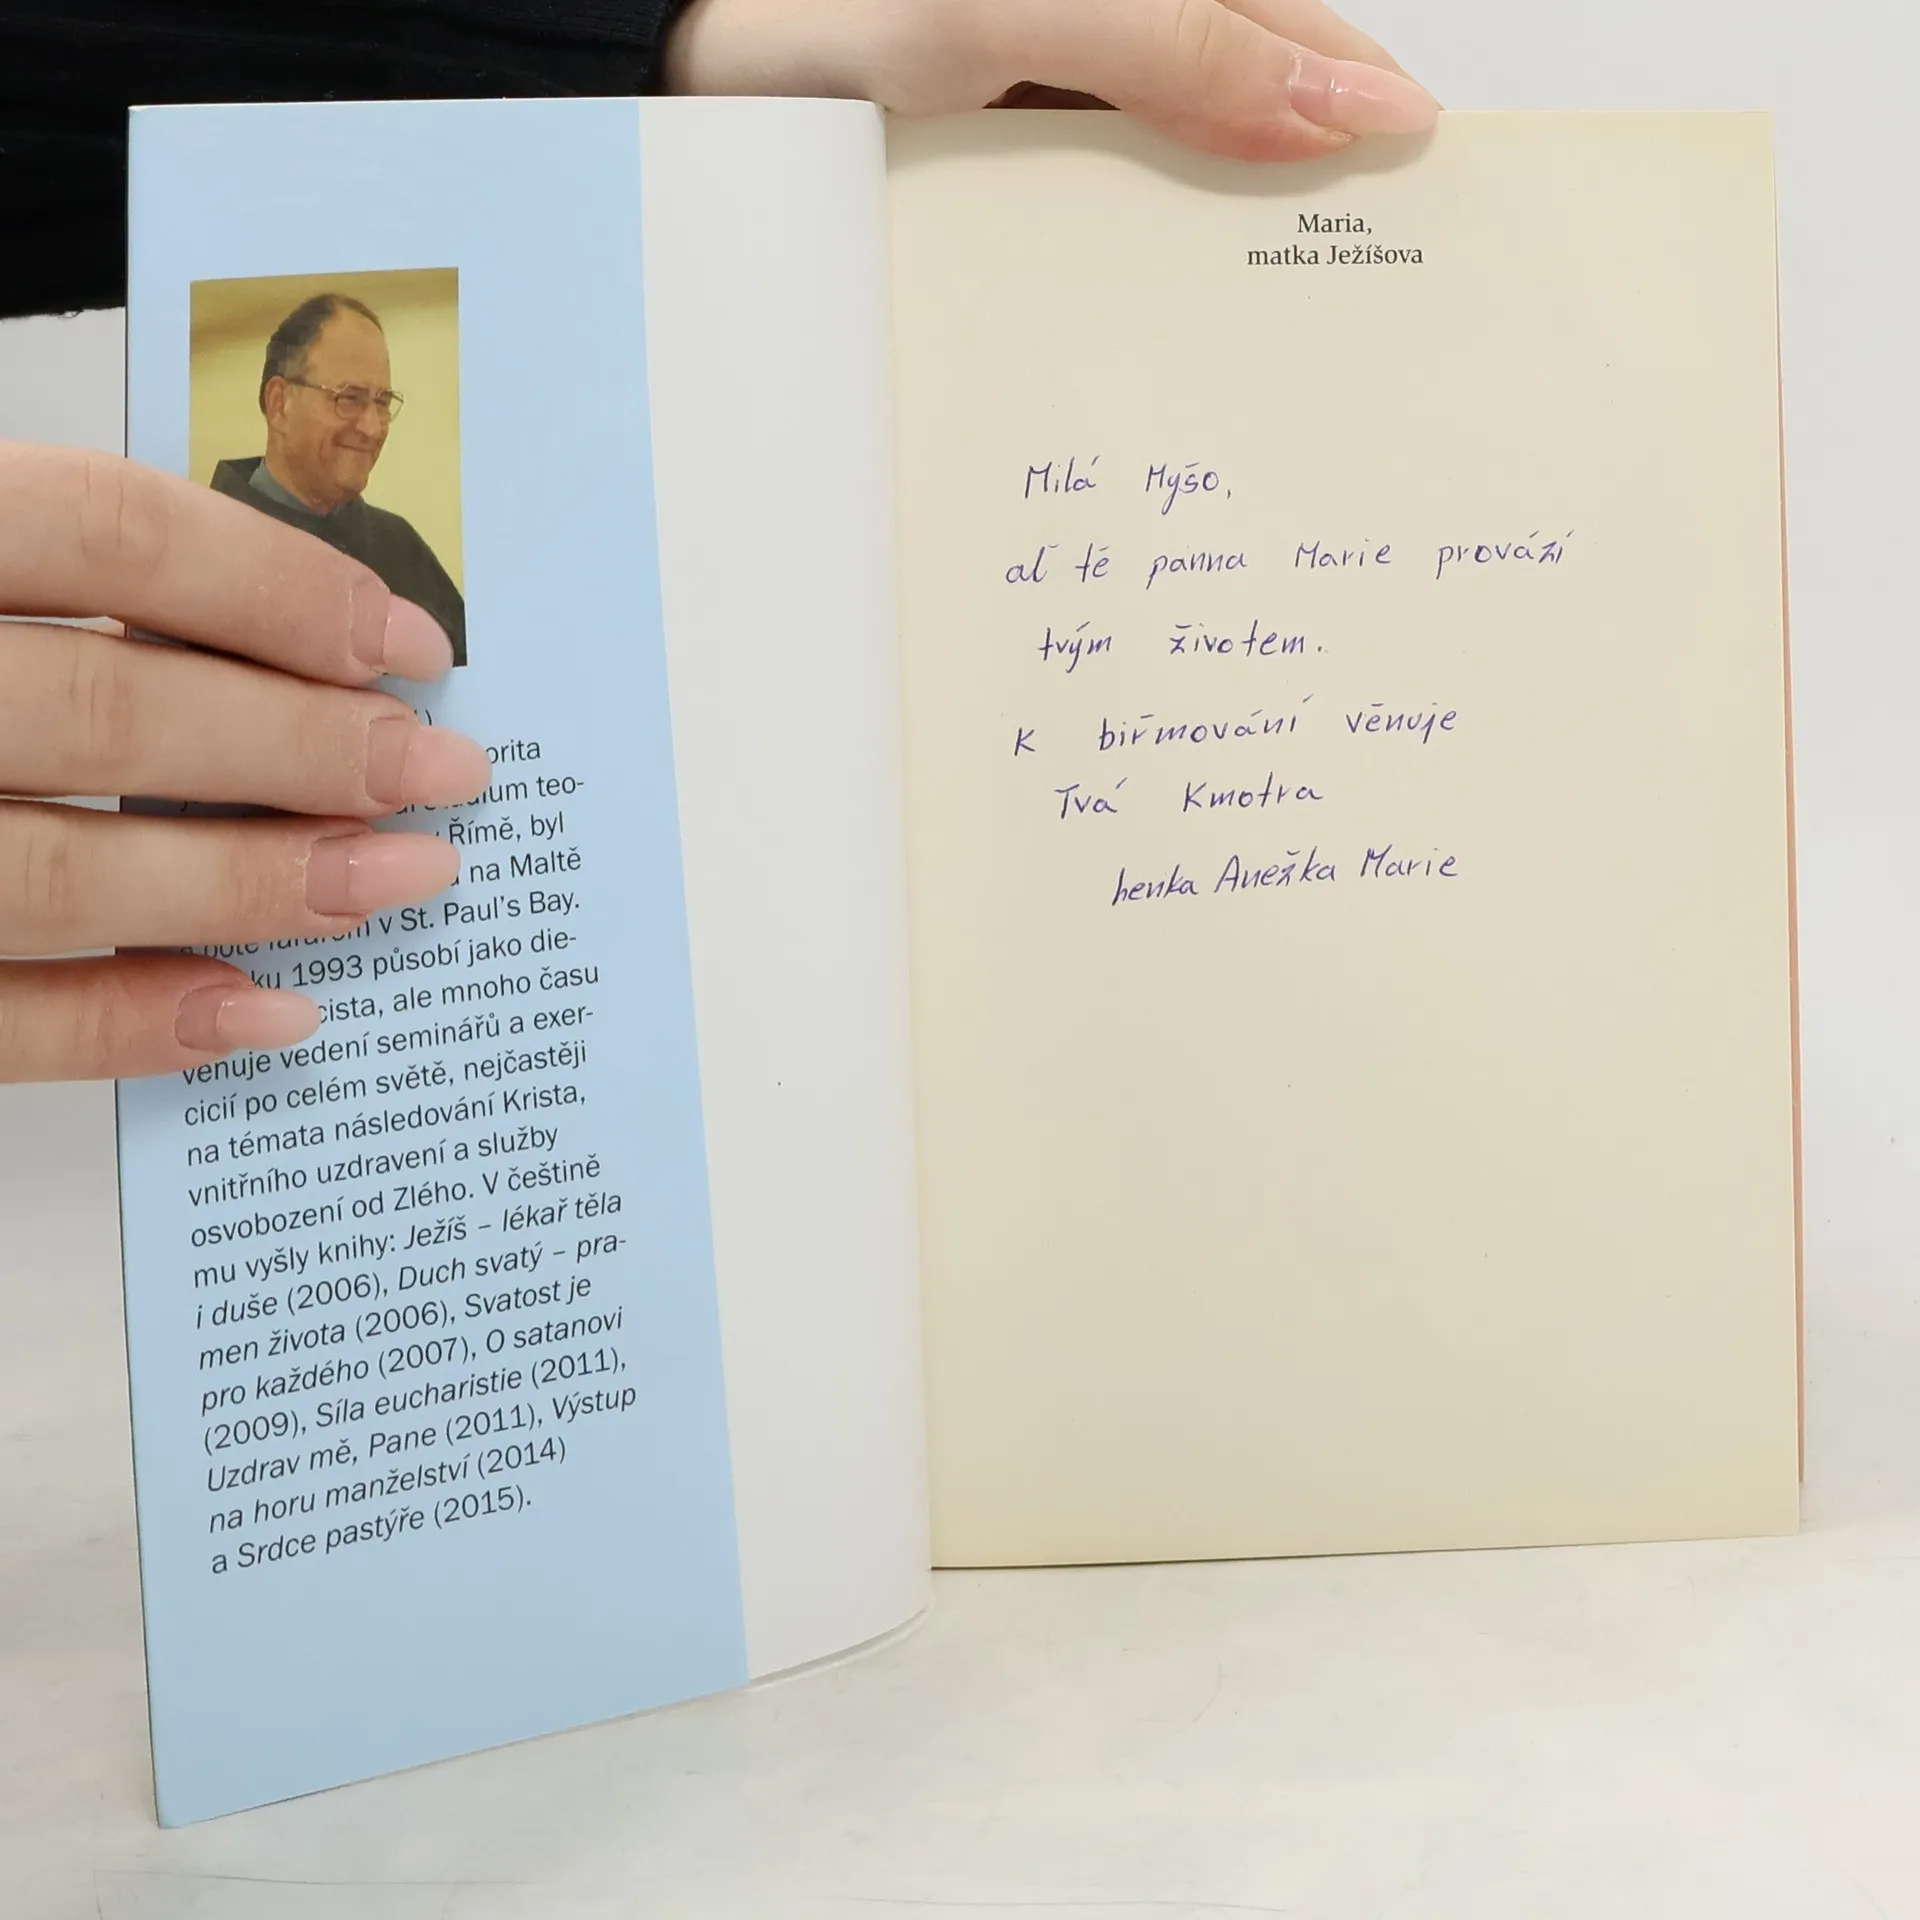 orita
teo-
Římě, byl
na Maltě
v St. Paul's Bay.
1993 působí jako die-
ale mnoho času
věnuje vedení seminářů a exer-
cicií po celém světě, nejčastěji
na témata následování Krista,
vnitřního uzdravení a služby
osvobození od Zlého. V češtině
mu vyšly knihy: Ježíš – lékař těla
i duše (2006), Duch svatý – pra-
men života (2006), Svatost je
pro každého (2007), O satanovi
(2009), Síla eucharistie (2011),
Uzdrav mě, Pane (2011), Výstup
na horu manželství (2014)
a Srdce pastýře (2015).
Maria,
matka Ježíšova
Milá Myšo,
ať tě panna Marie provází
tvým životem.
K biřmování věnuje
Tvá Kmotra
henka Anežka Marie